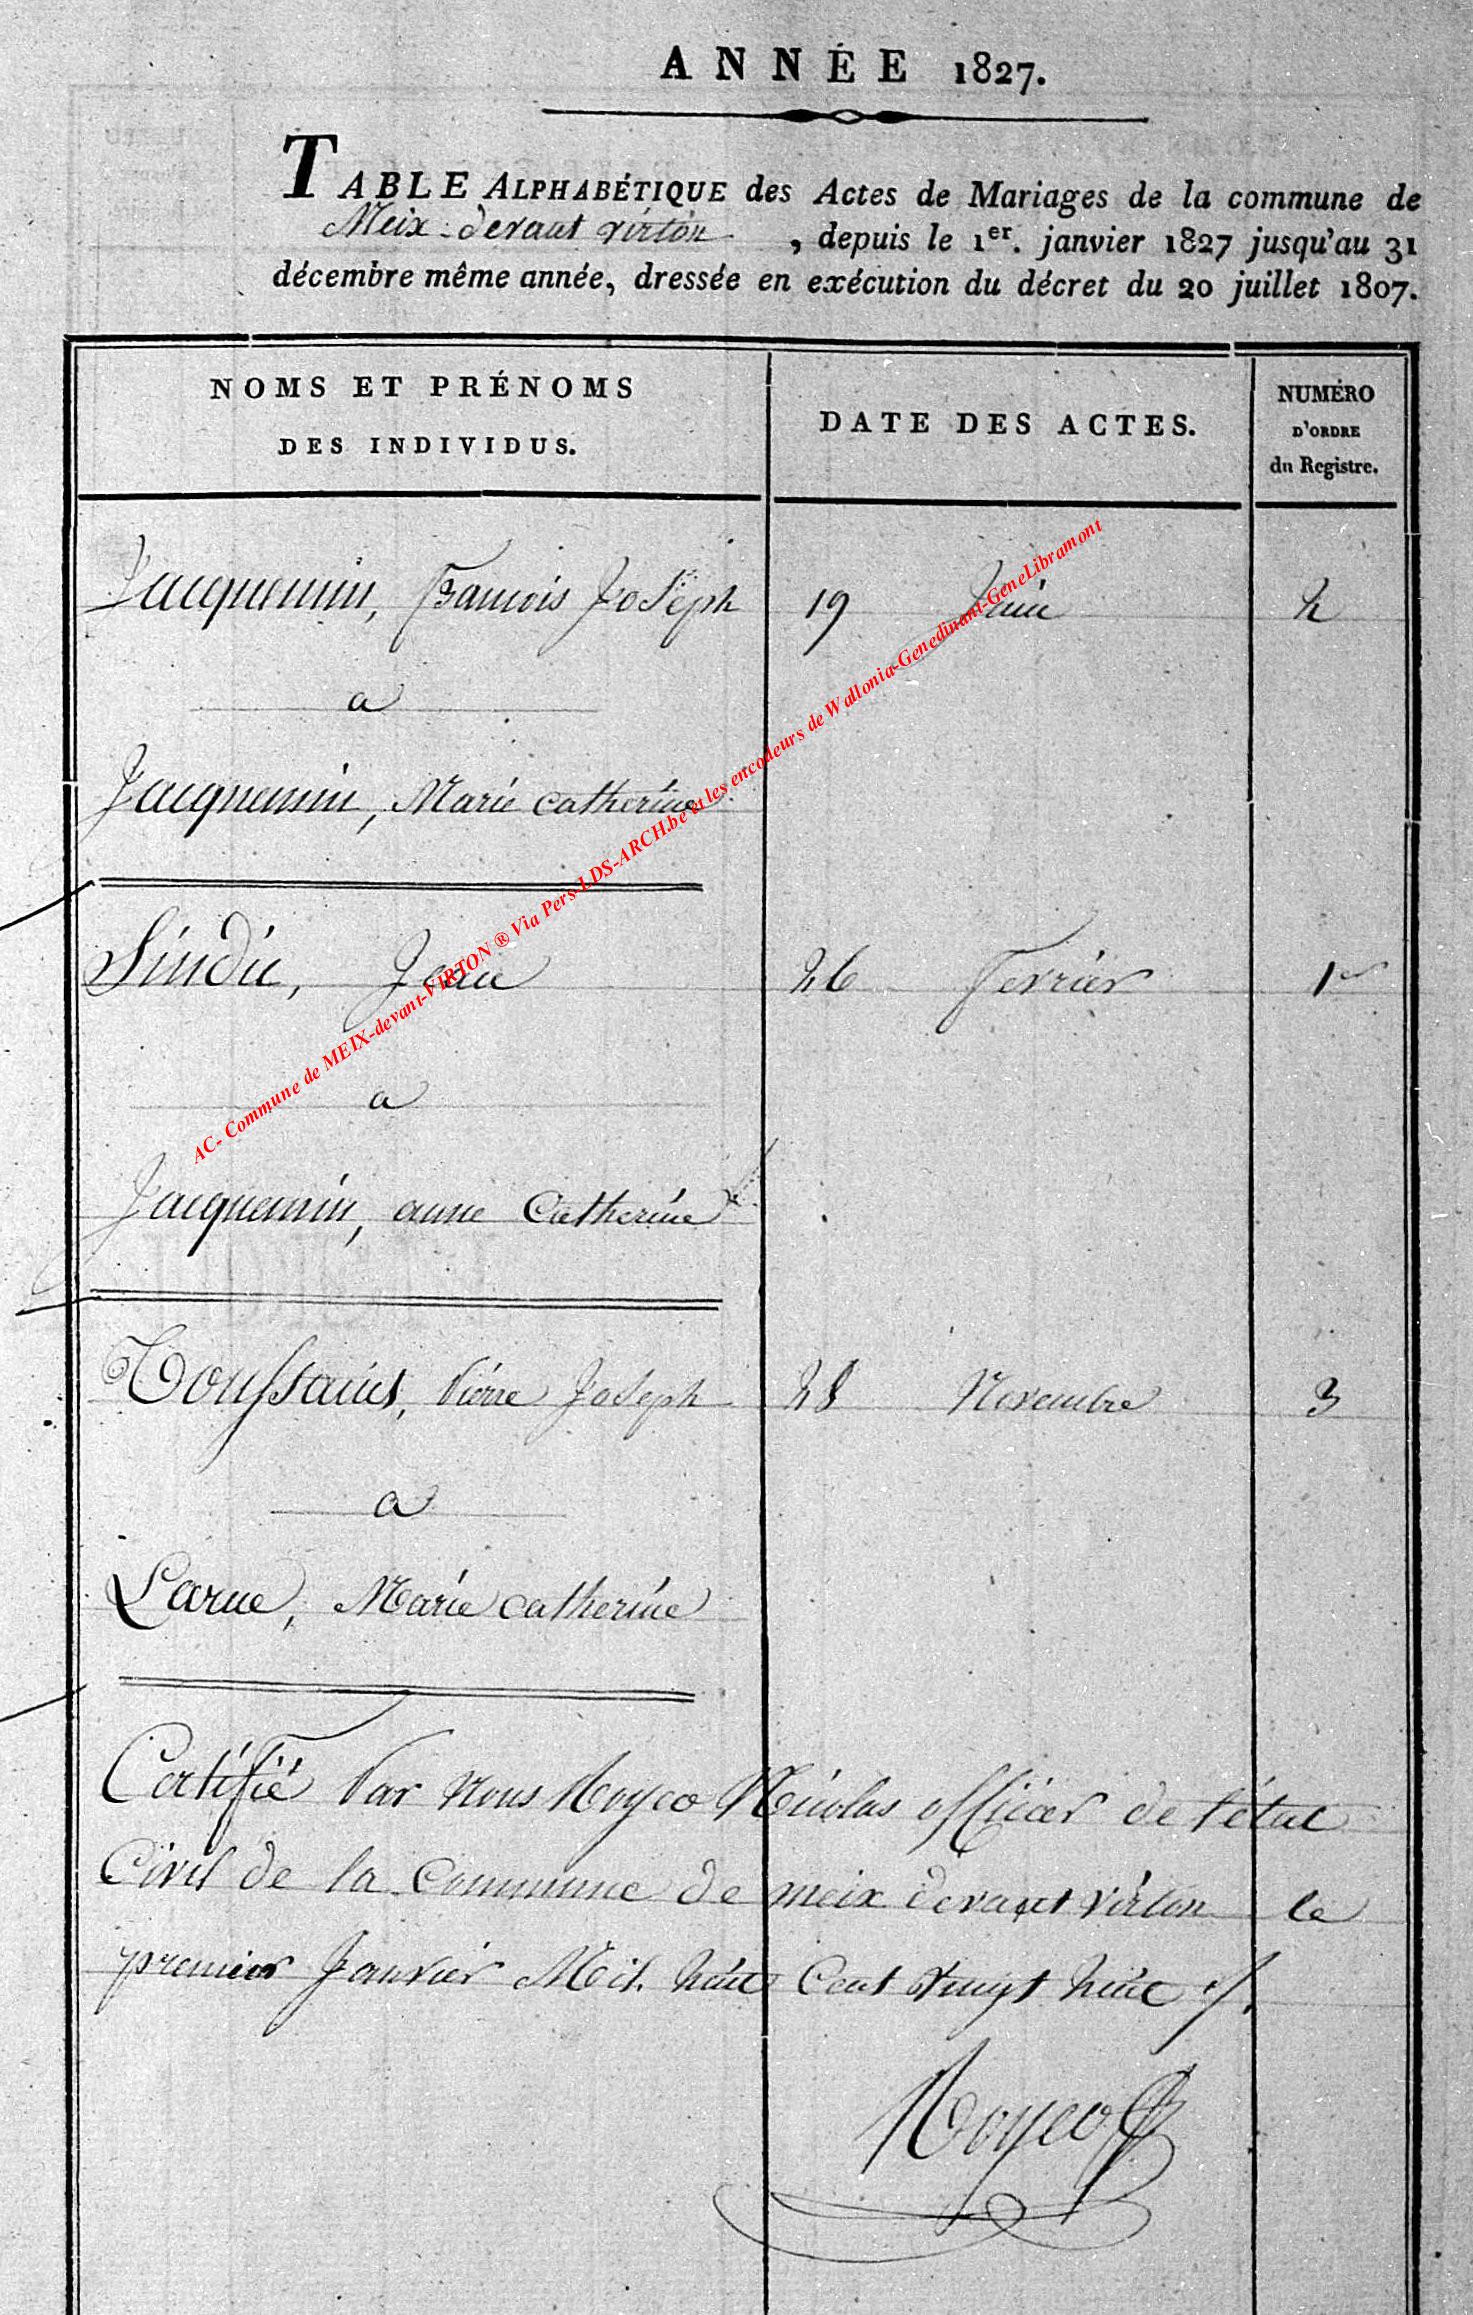 ANNÉE 1827.
TABLE ALPHABÉTIQUE des Actes de Mariages de la commune de
Meix-devant virton, depuis le 1er. janvier 1827 jusqu'au 31
décembre même année, dressée en exécution du décret du 20 juillet 1807.
NOMS ET PRÉNOMS
DES INDIVIDUS.
DATE DES ACTES.
NUMÉRO
D'ORDRE
du Registre.
Jacquemin, francois Joseph 19 Juin 2
a
Jacquemin, Marie catherine
Sindic, Jean 26 fevrier 1er
a
Jacquemin, anne Catherine
Toussaint, Pierre Joseph 28 Novembre 3
a
Larue, Marie catherine
Certifié Par Nous Noyco Nicolas officier de l'état
Civil de la Commune de meix devant virton le
premier Janvier Mil huit Cent vingt huit
Noyco
AC- Commune de MEIX-devant-VIRTON ® Via Pers-LDS-ARCH.be et les encodeurs de Wallonia-Genedinant-GeneLibramont